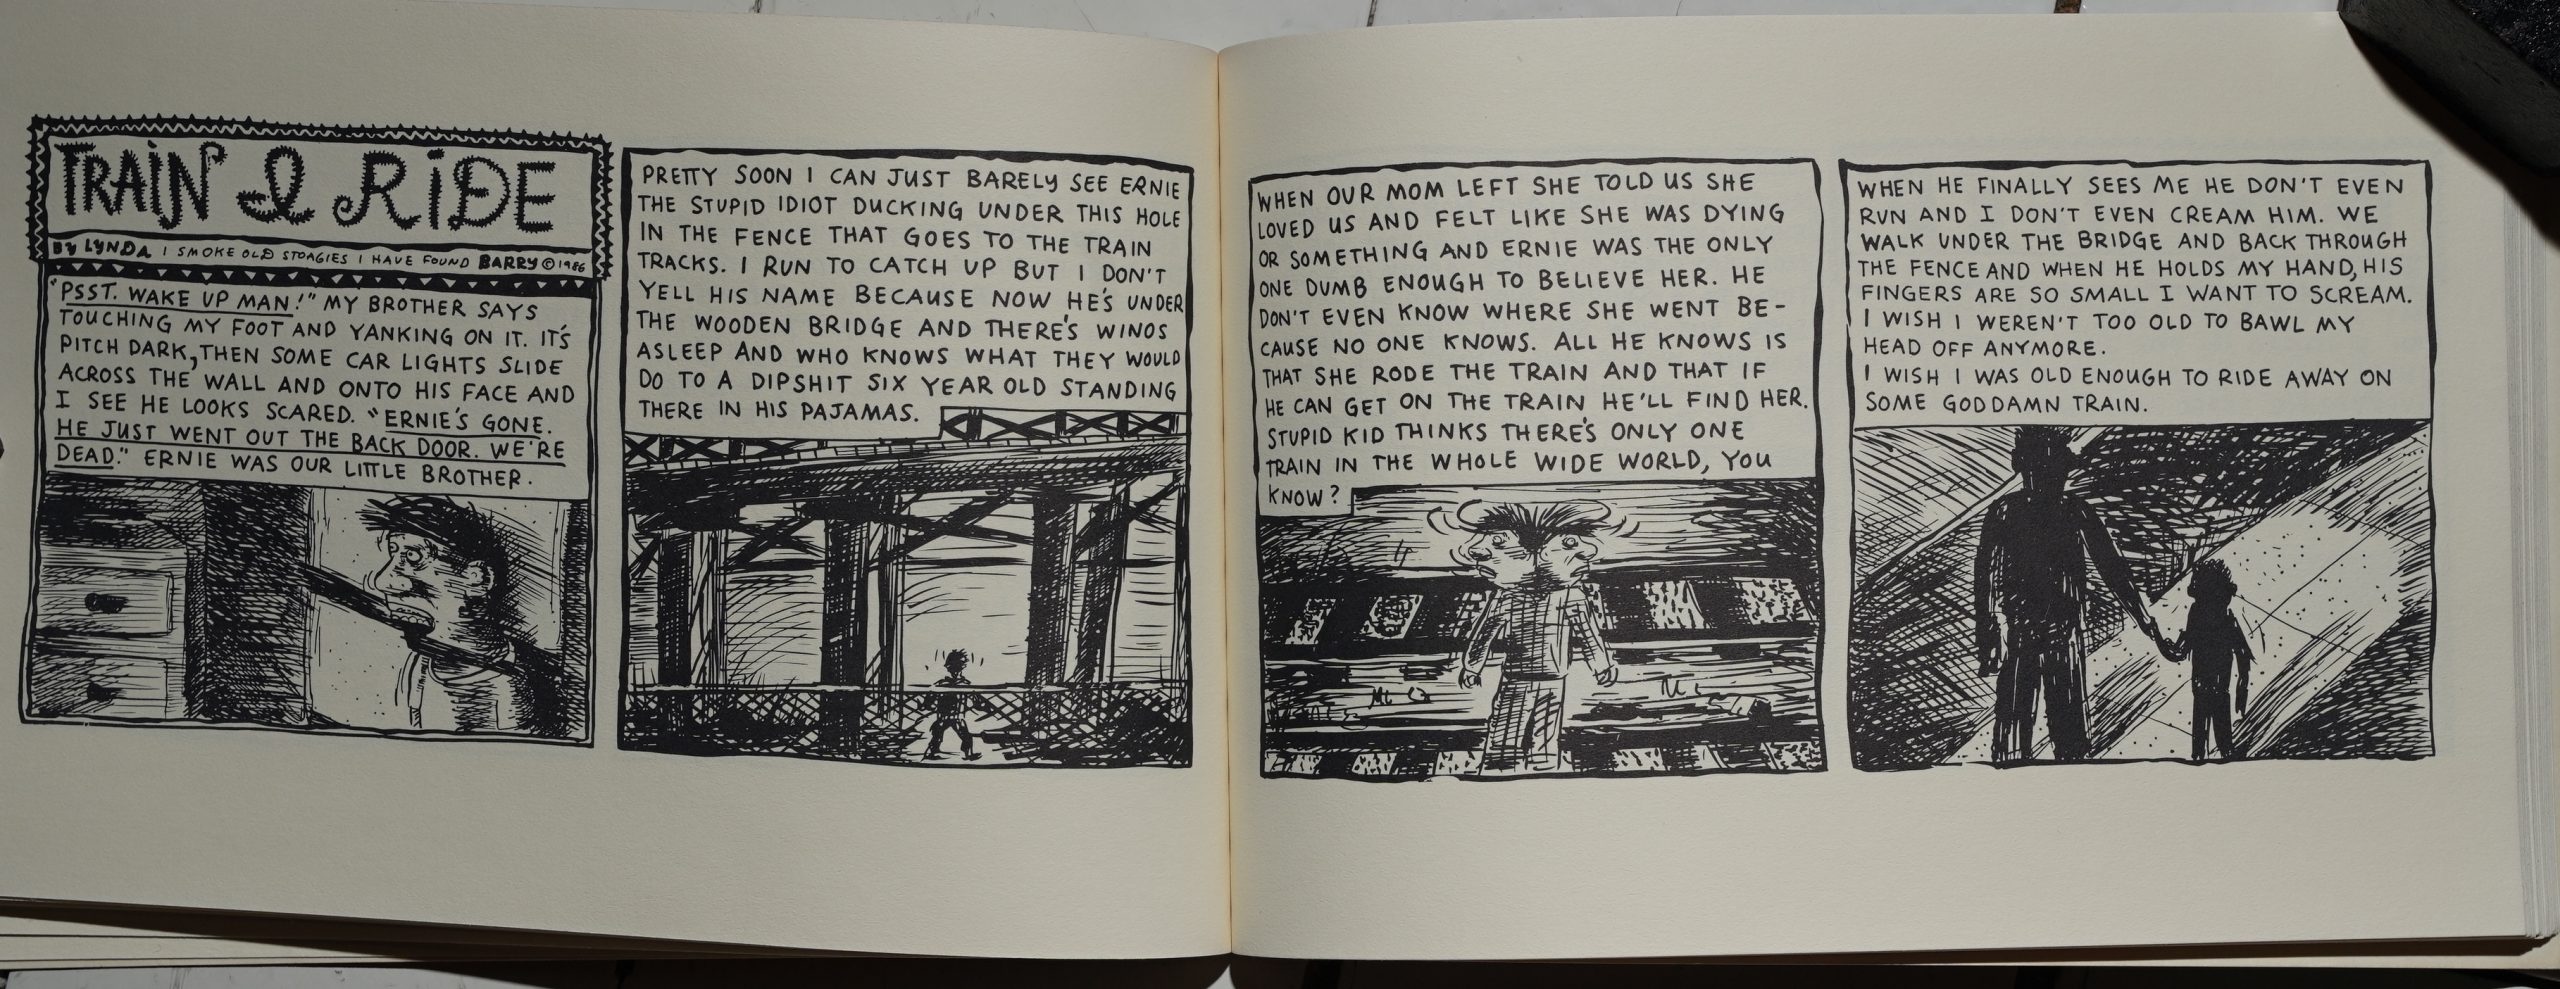 TRAIN I RIDE
BY LYNDA I SMOKE OLD STOAGIES I HAVE FOUND BARRY © 1986
"PSST. WAKE UP MAN!" MY BROTHER SAYS
TOUCHING MY FOOT AND YANKING ON IT. IT'S
PITCH DARK, THEN SOME CAR LIGHTS SLIDE
ACROSS THE WALL AND ONTO HIS FACE AND
I SEE HE LOOKS SCARED. "ERNIE'S GONE.
HE JUST WENT OUT THE BACK DOOR. WE'RE
DEAD." ERNIE WAS OUR LITTLE BROTHER.
PRETTY SOON I CAN JUST BARELY SEE ERNIE
THE STUPID IDIOT DUCKING UNDER THIS HOLE
IN THE FENCE THAT GOES TO THE TRAIN
TRACKS. I RUN TO CATCH UP BUT I DON'T
YELL HIS NAME BECAUSE NOW HE'S UNDER
THE WOODEN BRIDGE AND THERE'S WINOS
ASLEEP AND WHO KNOWS WHAT THEY WOULD
DO TO A DIPSHIT SIX YEAR OLD STANDING
THERE IN HIS PAJAMAS.
WHEN OUR MOM LEFT SHE TOLD US SHE
LOVED US AND FELT LIKE SHE WAS DYING
OR SOMETHING AND ERNIE WAS THE ONLY
ONE DUMB ENOUGH TO BELIEVE HER. HE
DON'T EVEN KNOW WHERE SHE WENT BE-
CAUSE NO ONE KNOWS. ALL HE KNOWS IS
THAT SHE RODE THE TRAIN AND THAT IF
HE CAN GET ON THE TRAIN HE'LL FIND HER.
STUPID KID THINKS THERE'S ONLY ONE
TRAIN IN THE WHOLE WIDE WORLD, YOU
KNOW?
WHEN HE FINALLY SEES ME HE DON'T EVEN
RUN AND I DON'T EVEN CREAM HIM. WE
WALK UNDER THE BRIDGE AND BACK THROUGH
THE FENCE AND WHEN HE HOLDS MY HAND, HIS
FINGERS ARE SO SMALL I WANT TO SCREAM.
I WISH I WEREN'T TOO OLD TO BAWL MY
HEAD OFF ANYMORE.
I WISH I WAS OLD ENOUGH TO RIDE AWAY ON
SOME GODDAMN TRAIN.